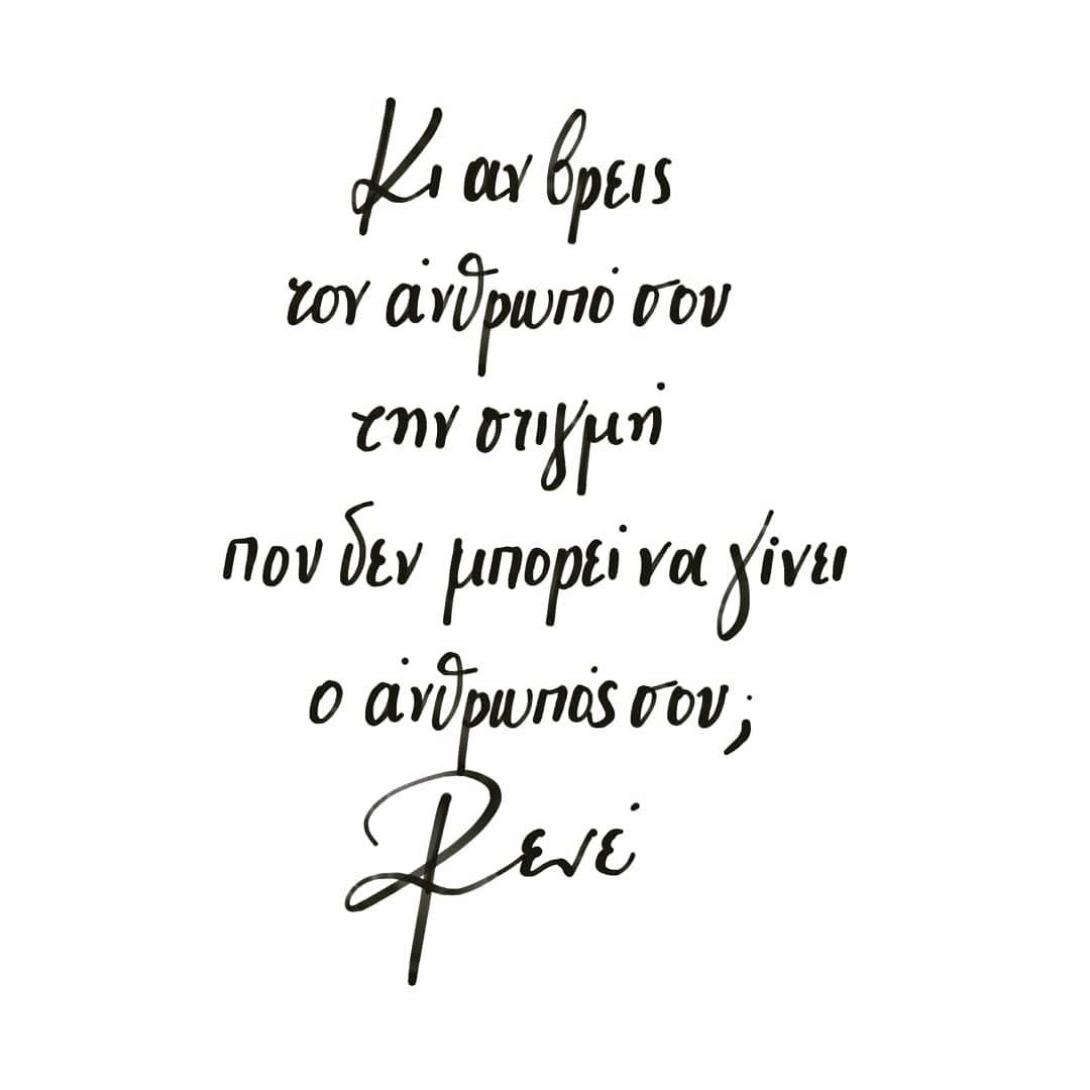 Κι αν βρεις
τον άνθρωπό σου
την στιγμή
που δεν μπορεί να γίνει
ο άνθρωπός σου;
Ρενέ